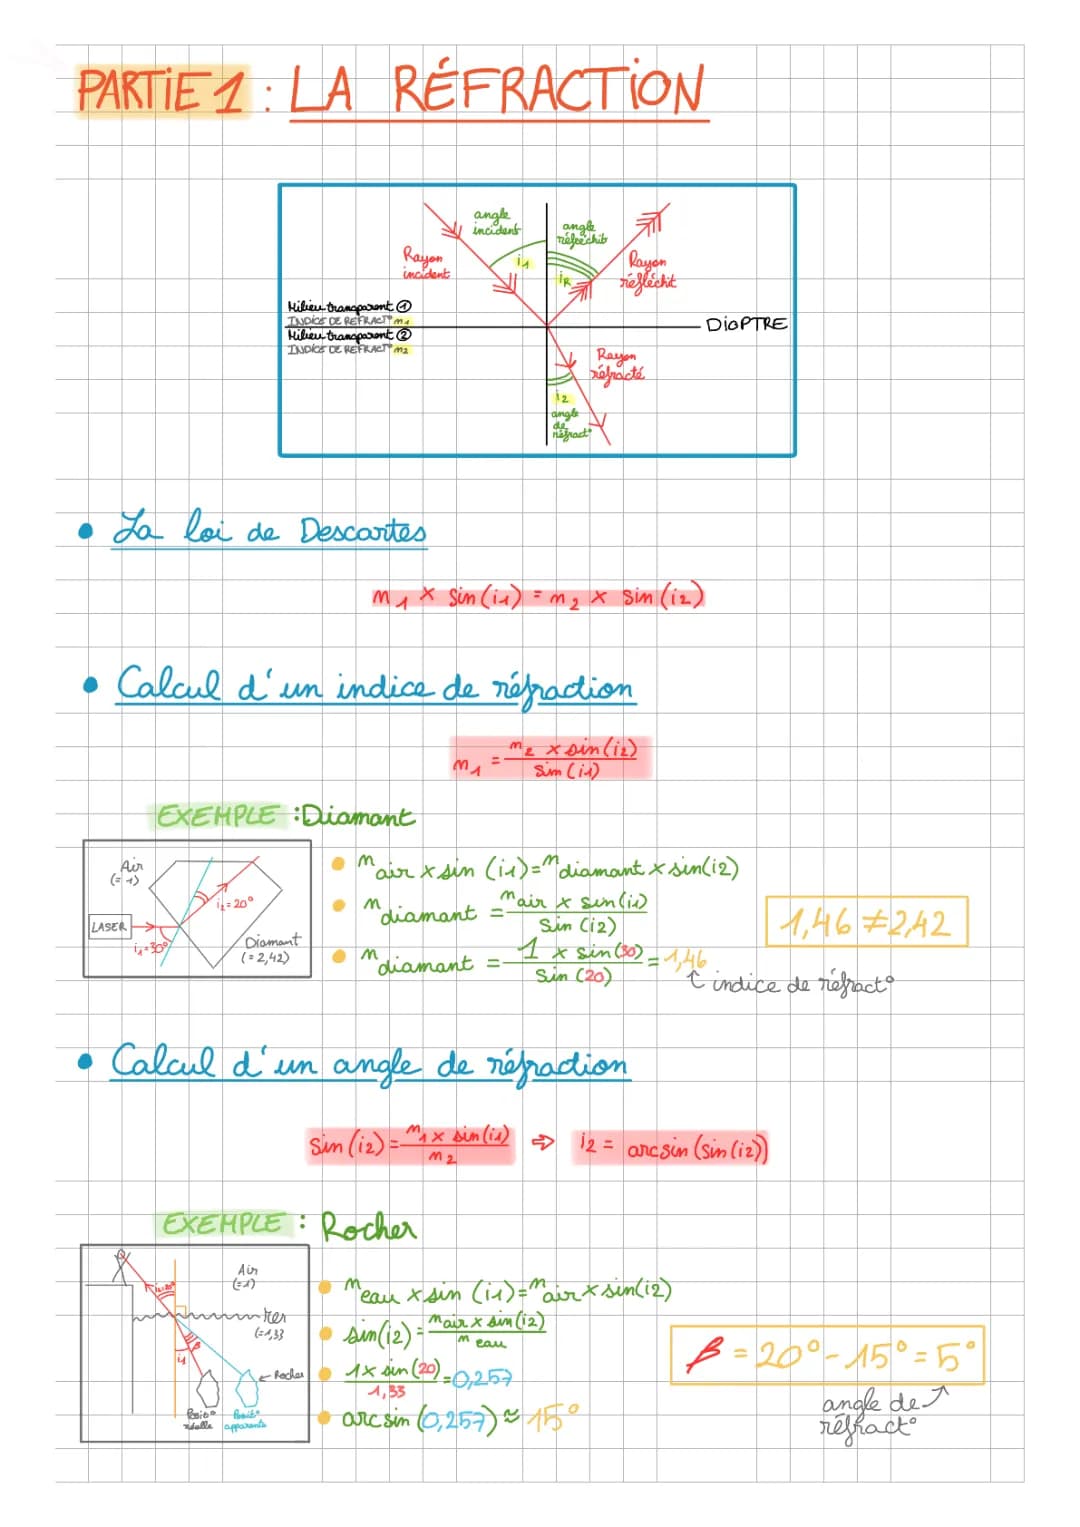 PARTIE 1 : LA RÉFRACTION
angle incident
angle réfléchit
i1
iR
Rayon incident
Rayon réfléchit
Milieu transparent ①
INDICE DE REFRACT° n1
DiOPTRE
Milieu transparent ②
INDICE DE REFRACT° n2
Rayon réfracté
i2
angle de réfract°
• La loi de Descartes
n1 × sin(i1) = n2 × sin(i2)
• Calcul d'un indice de réfraction
n1 = n2 × sin(i2) / sin(i1)
EXEMPLE : Diamant
Air (= 1)
LASER
i1 = 30°
i2 = 20°
Diamant (= 2,42)
• nair × sin (i1) = ndiamant × sin(i2)
• ndiamant = nair × sin(i1) / sin(i2)
• ndiamant = 1 × sin(30) / sin(20) = 1,46
↑ indice de réfract°
1,46 ≠ 2,42
• Calcul d'un angle de réfraction
sin(i2) = n1 × sin(i1) / n2 ⇨ i2 = arcsin(sin(i2))
EXEMPLE : Rocher
Air (=1)
i2=20°
(=1,33
β
i1
← Rocher
Posit° réelle
Posit° apparente
• neau × sin (i1) = nair × sin(i2)
• sin(i2) = nair × sin(i2) / neau
• 1 × sin(20) / 1,33 = 0,257
• arcsin(0,257) ≈ 15°
β = 20° - 15° = 5°
angle de réfract°